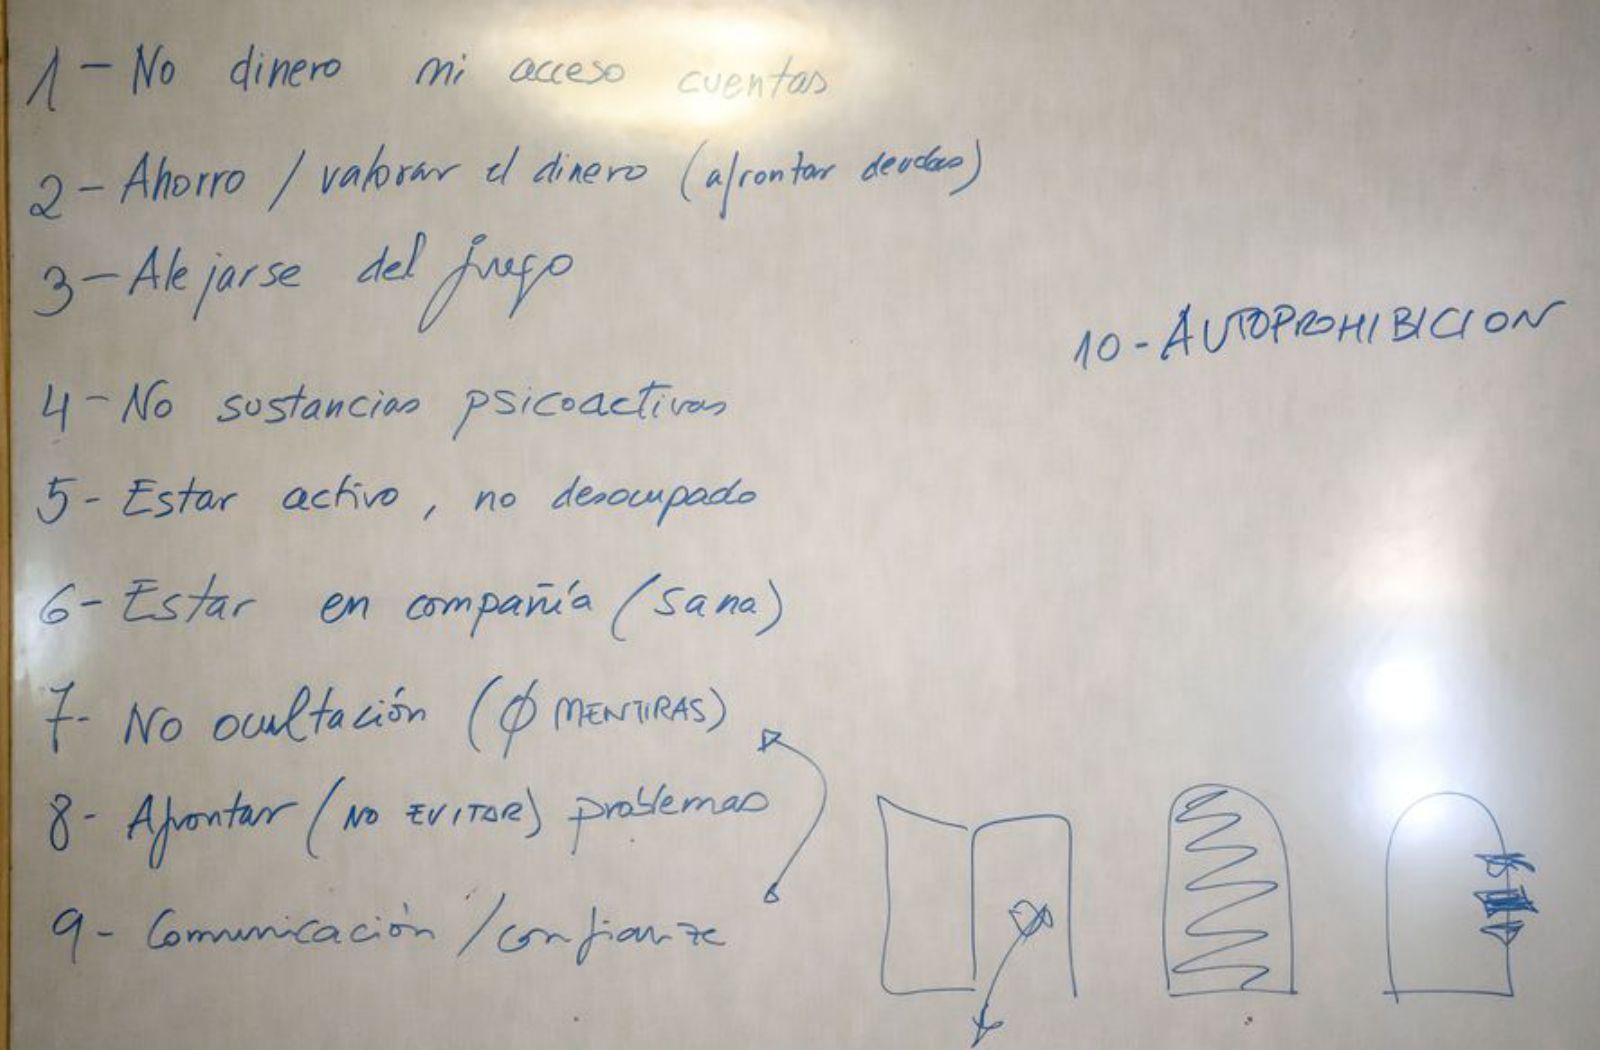 1 - No dinero ni acceso cuentas
2 - Ahorro / valorar el dinero (afrontar deudas)
3 - Alejarse del juego
10 - AUTOPROHIBICION
4 - No sustancias psicoactivas
5 - Estar activo, no desocupado
6 - Estar en compañía (sana)
7 - No ocultación (Ø MENTIRAS)
8 - Afrontar (NO EVITAR) problemas
9 - Comunicación / confianza